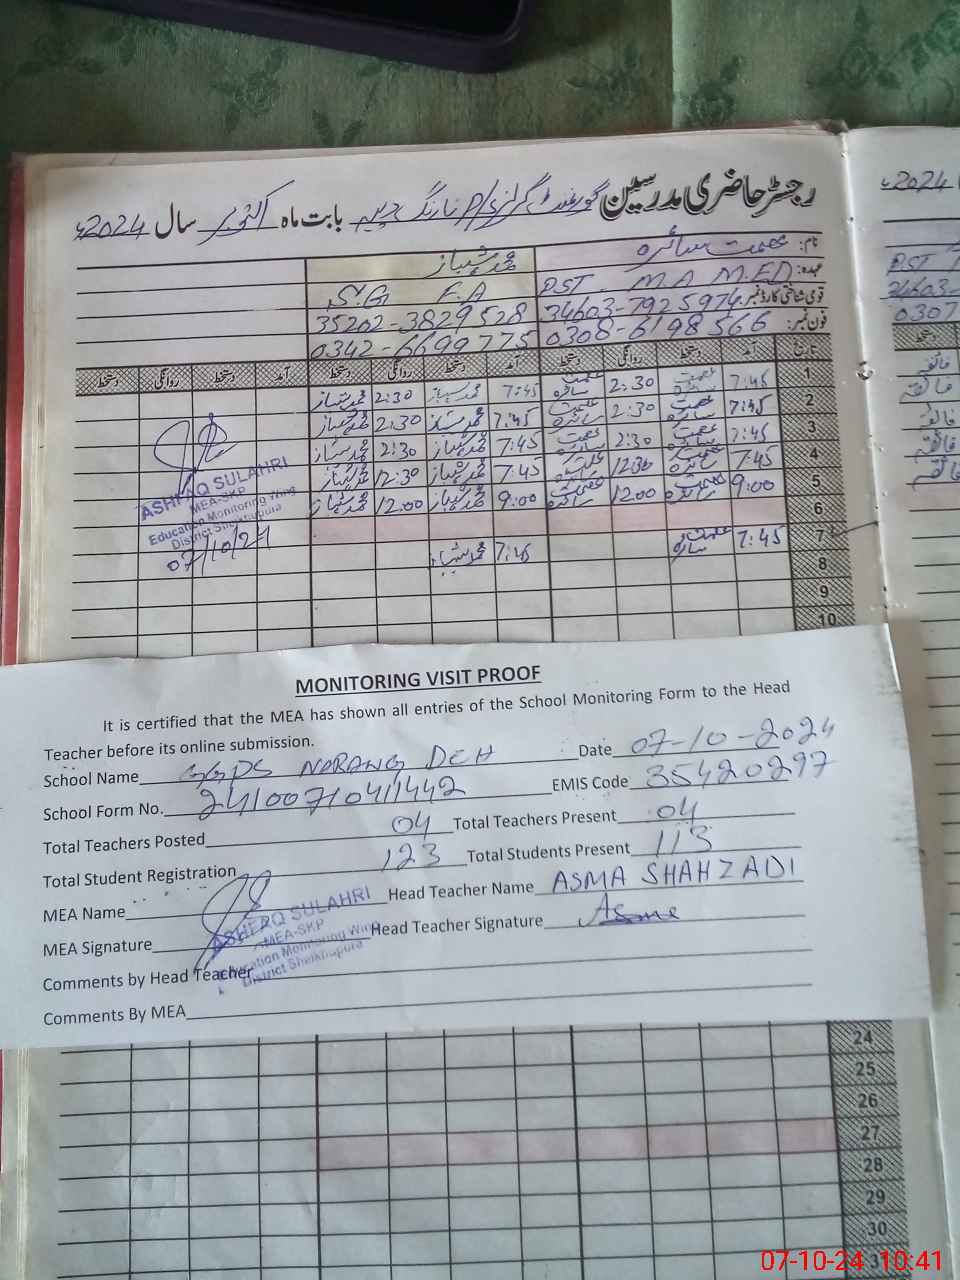 رجسٹر حاضری مدرسین گورنمنٹ گرلز P/S نارنگ ڈیہہ بابت ماہ اکتوبر سال 2024ء
2024
نام: عصمت سائرہ محمد شہباز
عہدہ: PST - M.A M.ED F.A PST
قومی شناختی کارڈ نمبر: 34603-7925974 35202-3829528 34603-
فون نمبر: 0308-6198566 0342-6699775 0307
تاریخ آمد دستخط روانگی دستخط آمد دستخط روانگی دستخط آمد دستخط روانگی دستخط
1 7:45 عصمت سائرہ 2:30 عصمت سائرہ 7:45 محمد شہباز 2:30 محمد شہباز
2 7:45 عصمت سائرہ 2:30 عصمت سائرہ 7:45 محمد شہباز 2:30 محمد شہباز
3 7:45 عصمت سائرہ 2:30 عصمت سائرہ 7:45 محمد شہباز 2:30 محمد شہباز
4 7:45 عصمت سائرہ 12:30 عصمت سائرہ 7:45 محمد شہباز 12:30 محمد شہباز
5 9:00 عصمت سائرہ 12:00 عصمت سائرہ 9:00 محمد شہباز 12:00 محمد شہباز
6
7 7:45 عصمت سائرہ 7:45 محمد شہباز
8
9
10
ASHFAQ SULAHRI
MEA-SKP
Education Monitoring Wing
District Sheikhupura
07/10/24
MONITORING VISIT PROOF
It is certified that the MEA has shown all entries of the School Monitoring Form to the Head
Teacher before its online submission.
School Name GGPS NARANG DEH Date 07-10-2024
School Form No. 24100710411442 EMIS Code 35420297
Total Teachers Posted 04 Total Teachers Present 04
Total Student Registration 123 Total Students Present 113
MEA Name Head Teacher Name ASMA SHAHZADI
MEA Signature Head Teacher Signature Asma
ASHFAQ SULAHRI
MEA-SKP
Education Monitoring Wing
District Sheikhupura
Comments by Head Teacher
Comments By MEA
24
25
26
27
28
29
30
31
07-10-24 10:41